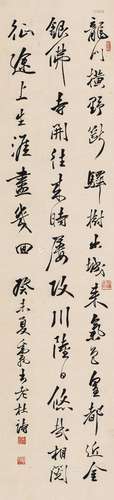 龍門橫野斷驛樹出城来氣色皇都近金
銀佛寺開往来時屢改川陸日悠哉相閱
征途上生涯盡幾回 癸未夏 書老杜詩